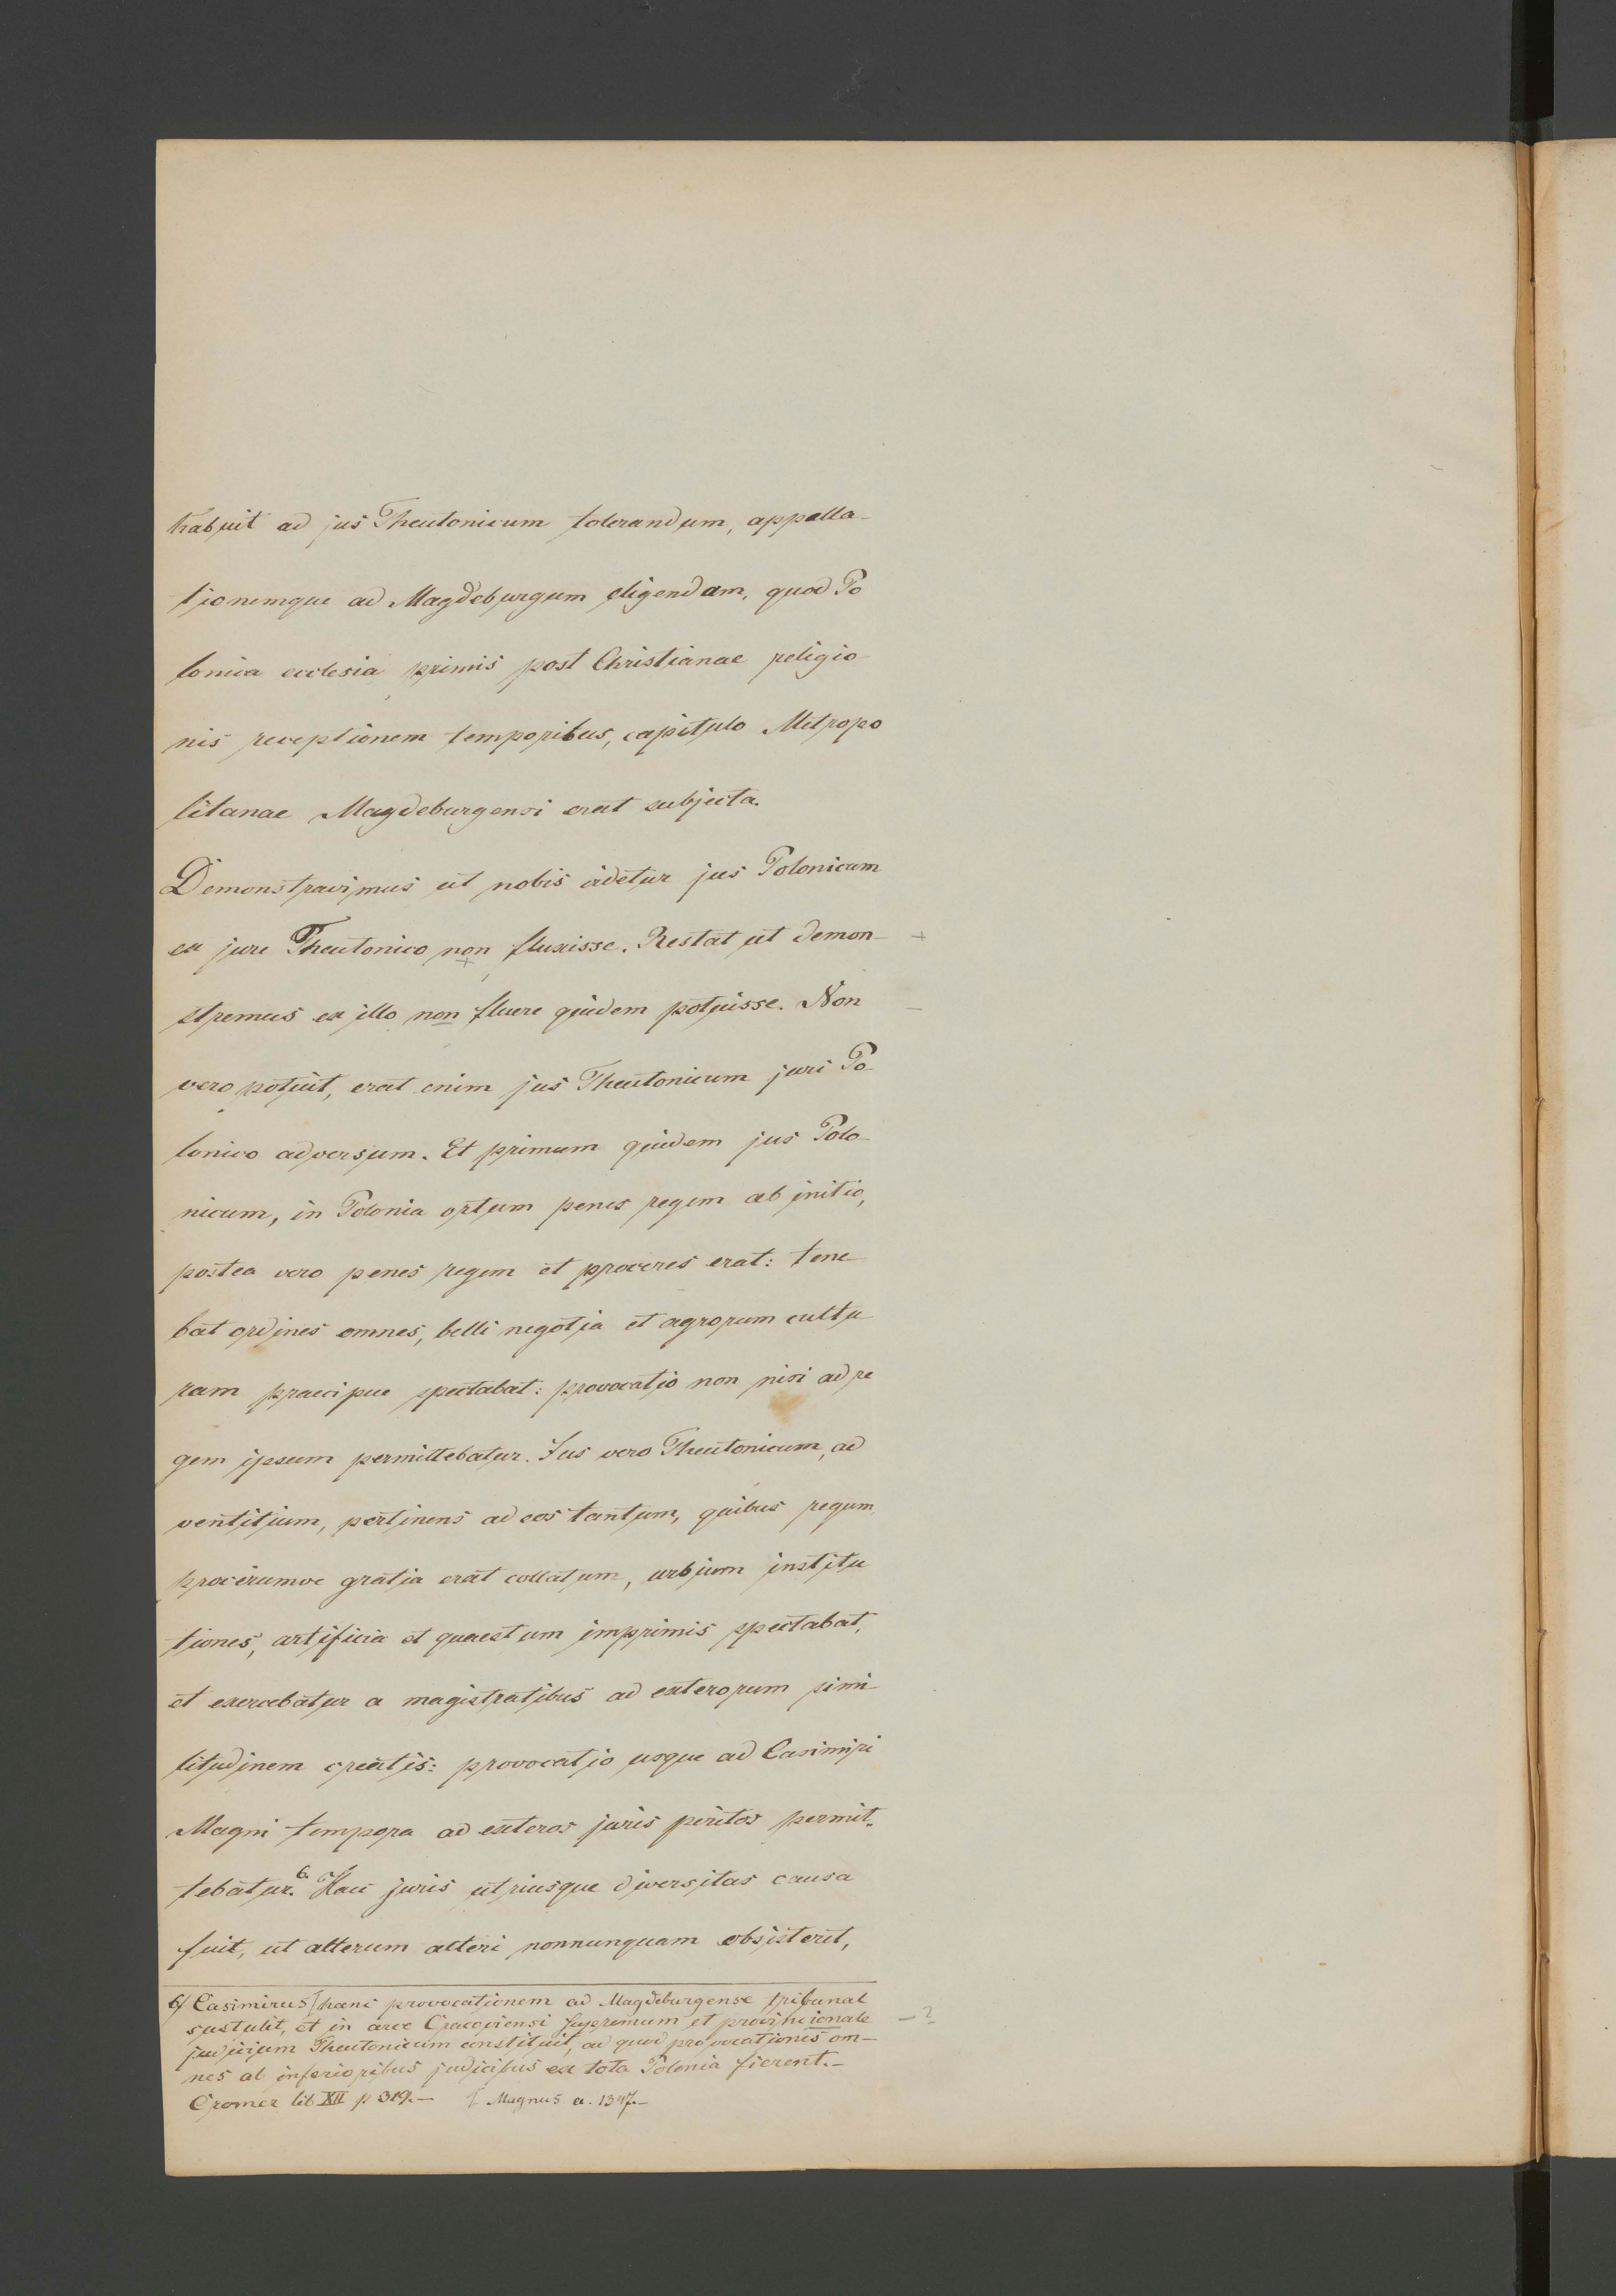 habuit ad jus Theutonicum tolerandum, appella-
tionemque ad Magdeburgum eligendam, quod Po
lonica ecclesia primis post Christianae religio
nis receptionem temporibus, capitulo Metropo
litanae Magdeburgensi erat subjecta.
Demonstravimus ut nobis videtur jus Polonicum
ex jure Theutonico non fluxisse. Restat ut demon- +
+
stremus ex illo non fluere quidem potuisse. Non -
vero potuit, erat enim jus Theutonicum juri Po
lonico adversum. Et primum quidem jus Polo-
nicum, in Polonia ortum penes regem ab initio,
postea vero penes regem et proceres erat: tene
bat ordines omnes, belli negotia et agrorum cultu
ram praecipue spectabat: provocatio non nisi ad re
gem ipsum permittebatur. Jus vero Theutonicum, ad
ventitium, pertinens ad eos tantum, quibus regum
procerumve gratia erat collatum, urbium institu
tiones, artificia et quaestum imprimis spectabat,
et exercebatur a magistratibus ad exterorum simi
litudinem creatis: provocatio usque ad Casimiri
Magni tempora ad exteros juris peritos permit-
tebatur.6 Haec juris utriusque diversitas causa
fuit, ut alterum alteri nonnunquam obsisteret,
6/ Casimirus ſ hanc provocationem ad Magdeburgense tribunal
sustulit, et in arce Cracoviensi supremum et provincionale - ?
judicium Theutonicum constituit, ad quod provocationes om-
nes ab inferioribus judicibus ex tota Polonia fierent.-
Cromer lib XII p 319.- ſ Magnus a. 1347.-